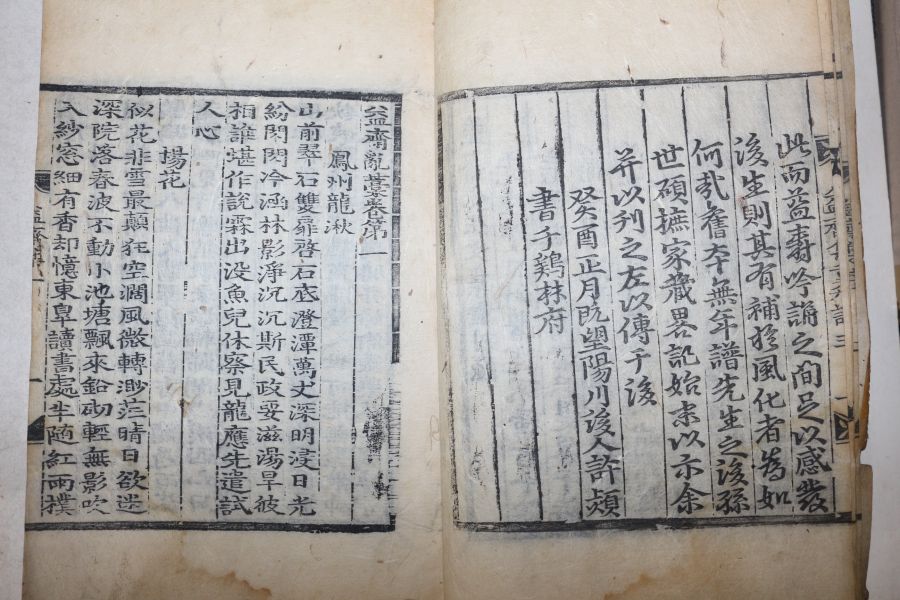 此而益齋吟誦之間足以感發
後生則其有補於風化者為如
何哉舊本無年譜先生之後孫
世碩摭家藏畧記始末以示余
并以刊之左以傳于後
癸酉正月既望陽川後人許熲
書于鷄林府
益齋亂藁卷第一
鳳州龍湫
山前翠石雙扉啓石底澄潭萬丈深明浸日光
紛閃閃冷涵林影淨沉沉斯民政要滋湯旱彼
相誰堪作說霖出沒魚兒休察見龍應先遣試
人心
楊花
似花非雪最顛狂空濶風微轉渺茫晴日欲迷
深院落春波不動小池塘飄來鉛砌輕無影吹
入紗窓細有香却憶東皐讀書處半随紅雨撲